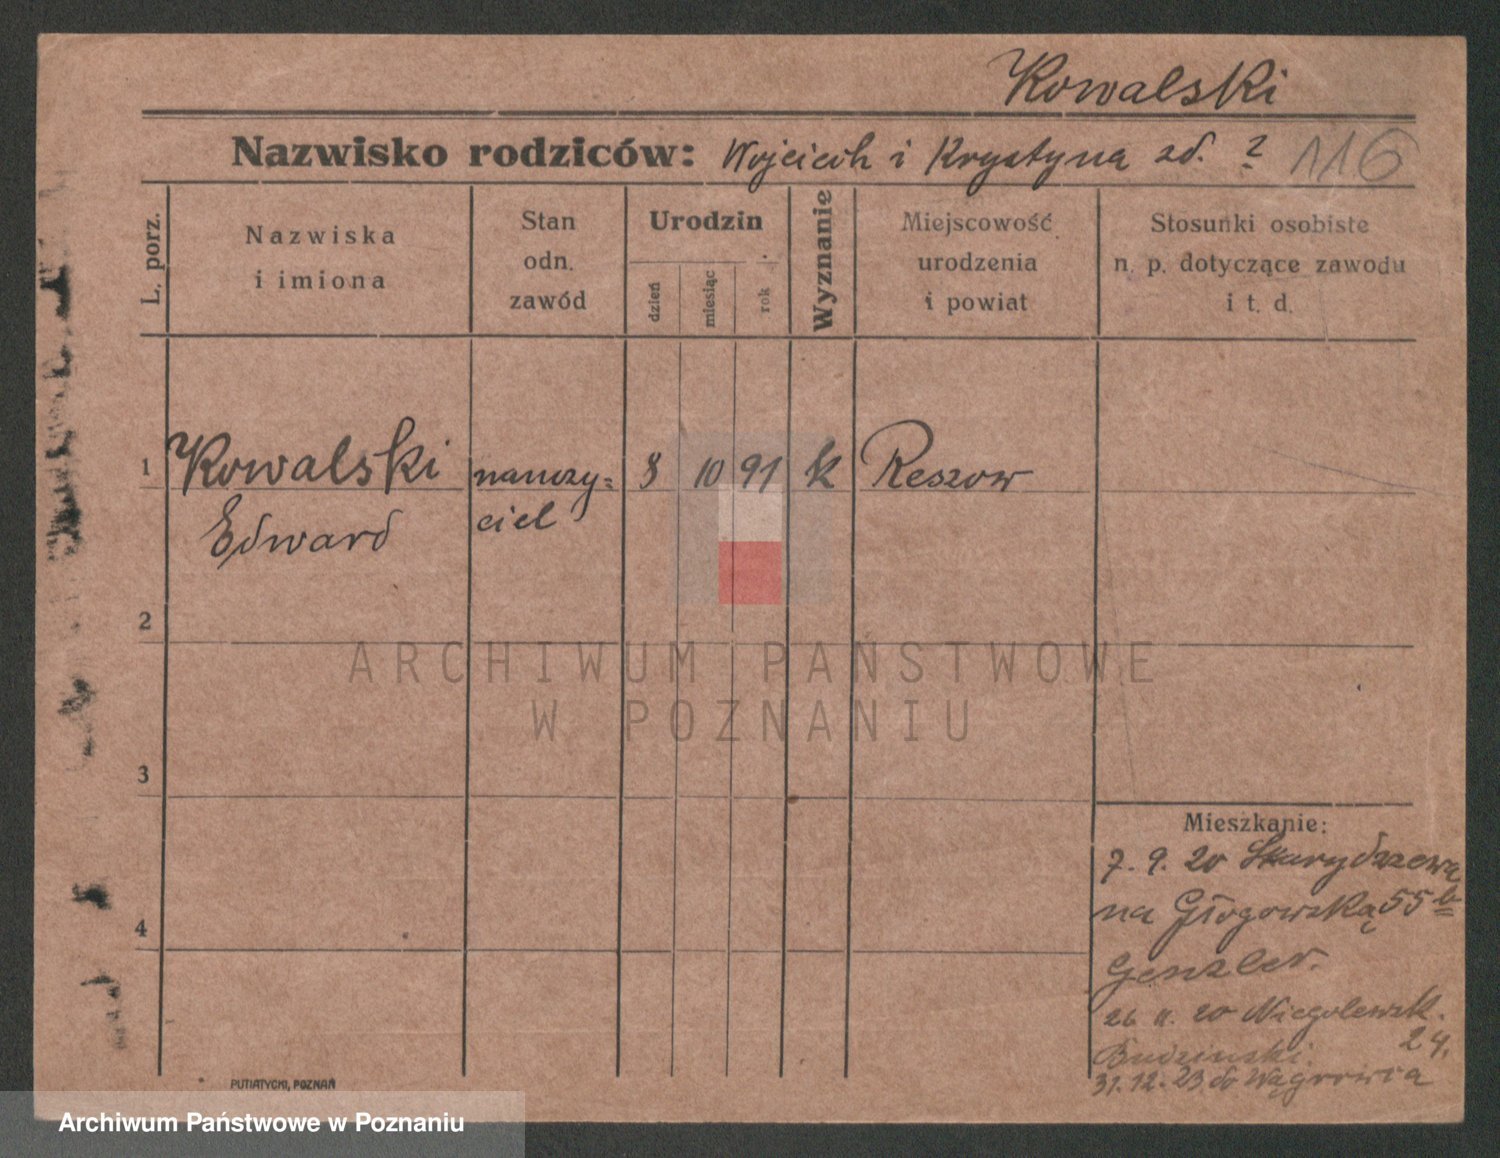 Kowalski
Nazwisko rodziców: Wojciech i Krystyna zd. ? 116
L. porz.
Nazwiska i imiona
Stan odn. zawód
Urodzin
dzień
miesiąc
rok
Wyznanie
Miejscowość urodzenia i powiat
Stosunki osobiste n. p. dotyczące zawodu i t. d.
1 Kowalski nauczy= 8 10 91 k Reszow
Edward ciel
2
ARCHIWUM PAŃSTWOWE
W POZNANIU
3
Mieszkanie:
7. 9. 20
4
na Głogowską 55 b
Genzler.
26 11. 20 Niegolewsk.
Budzinski. 24.
31. 12. 23 do Wągrowca
PUTIATYCKI, POZNAŃ
Archiwum Państwowe w Poznaniu